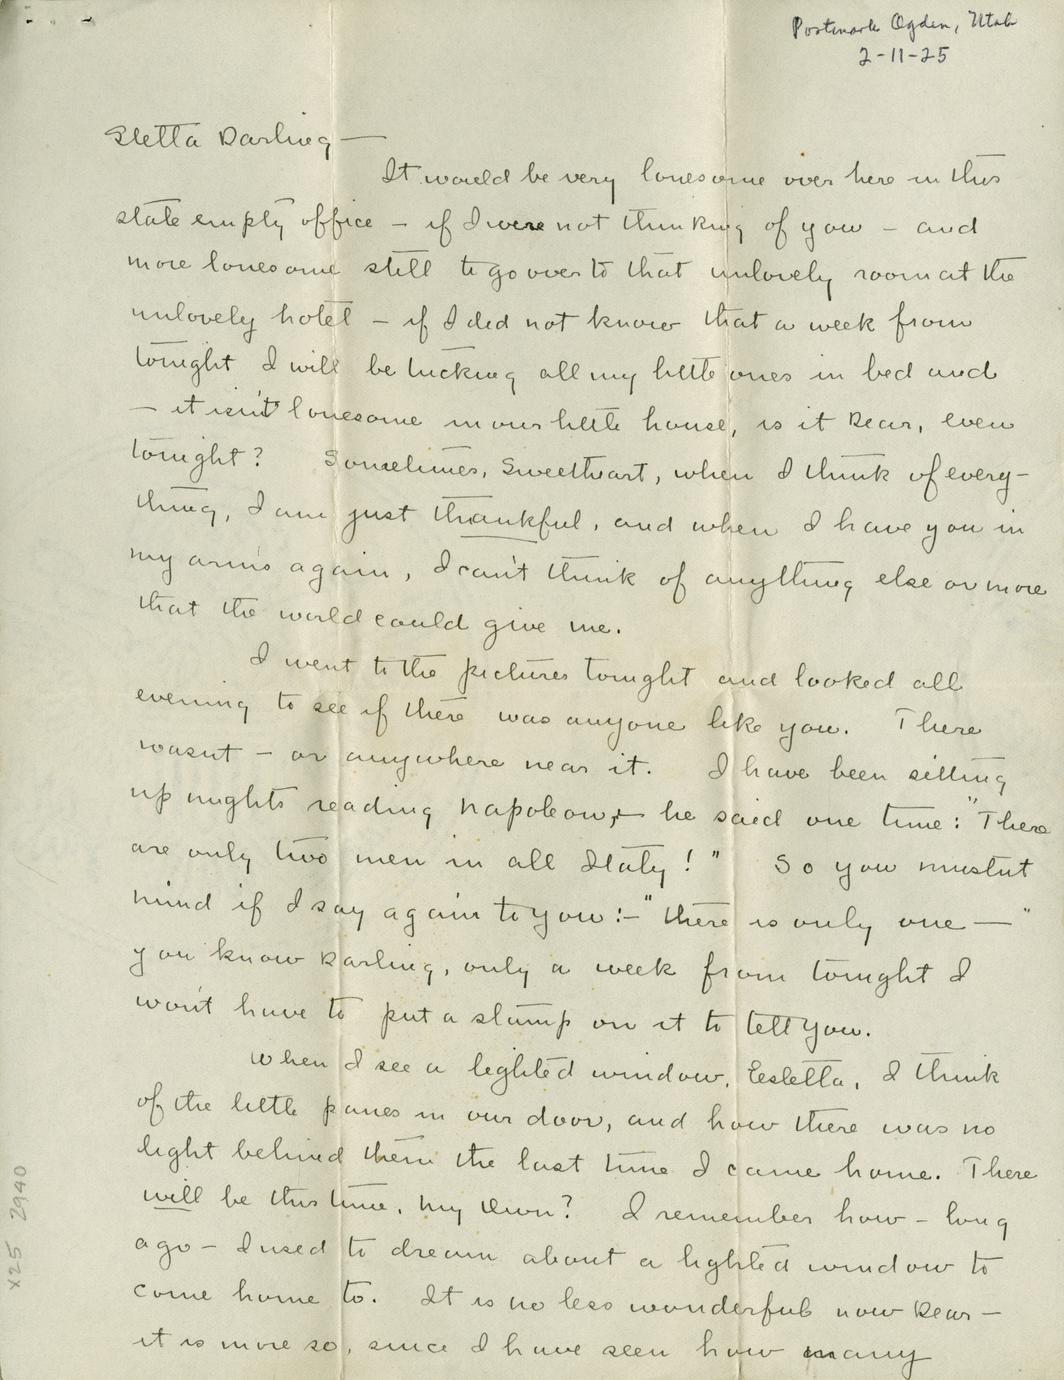 Postmark Ogden, Utah
2-11-25
Sletta Darling —
It would be very lonesome over here in this
state empty office — if I were not thinking of you — and
more lonesome still to go over to that unlovely room at the
unlovely hotel — if I did not know that a week from
tonight I will be tucking all my little ones in bed and
— it isn't lonesome in our little house, is it Dear, even
tonight? Sometimes, Sweetheart, when I think of every-
thing, I am just thankful, and when I have you in
my arms again, I can't think of anything else or more
that the world could give me.
I went to the pictures tonight and looked all
evening to see if there was anyone like you. There
wasnt — or anywhere near it. I have been sitting
up nights reading Napoleon, + he said one time: "There
are only two men in all Italy!" So you mustnt
mind if I say again to you:— "there is only one — "
you know Darling, only a week from tonight I
won't have to put a stamp on it to tell you.
When I see a lighted window, Esletta, I think
of the little panes in our door, and how there was no
light behind them the last time I came home. There
will be this time, my Own? I remember how — long
ago — I used to dream about a lighted window to
come home to. It is no less wonderful now Dear —
it is more so, since I have seen how many
X25 2940